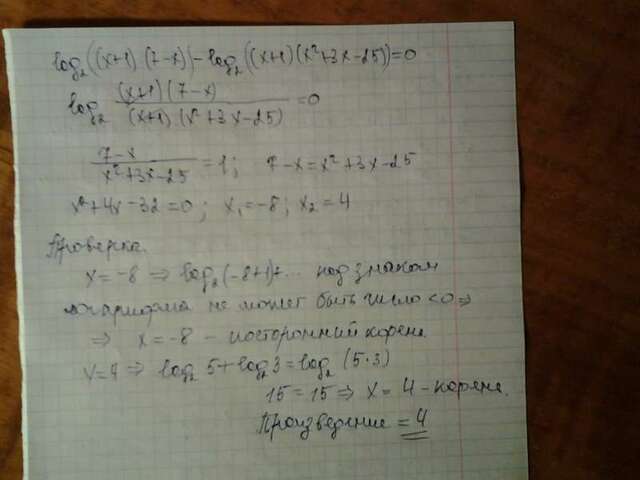 log₂((x+1)(7-x))-log₂((x+1)(x²+3x-25))=0
log₂ (x+1)(7-x)/(x+1)(x²+3x-25) =0
7-x/x²+3x-25 =1; 7-x=x²+3x-25
x²+4x-32=0; x₁=-8; x₂=4
Проверка.
x=-8 ⇒ log₂(-8+1)+... под знаком
логарифма не может быть число <0 ⇒
⇒ x=-8 - посторонний корень
x=4 ⇒ log₂ 5+log₂ 3=log₂ (5·3)
15=15 ⇒ x=4 - корень.
Произведение = 4